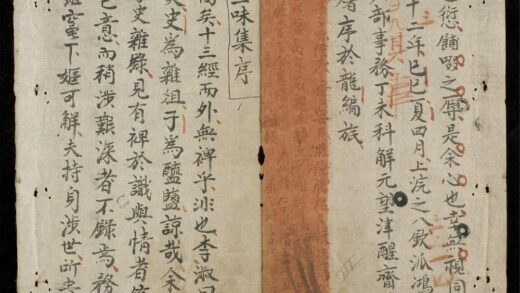 愆餔啜之辱是余心也幸無視同
十二年己巳夏四月上浣之八欽派鴻
部事務丁未科解元望津醒齋
序於龍編旅
三味集序
尚矣十三經而外無裨乎非也李淑
史為雜俎子為醯鹽諒哉余
史雜錄見有裨於識與情者
己意而稍涉艱深者不錄焉務
竈下嫗可解夫持身涉世所